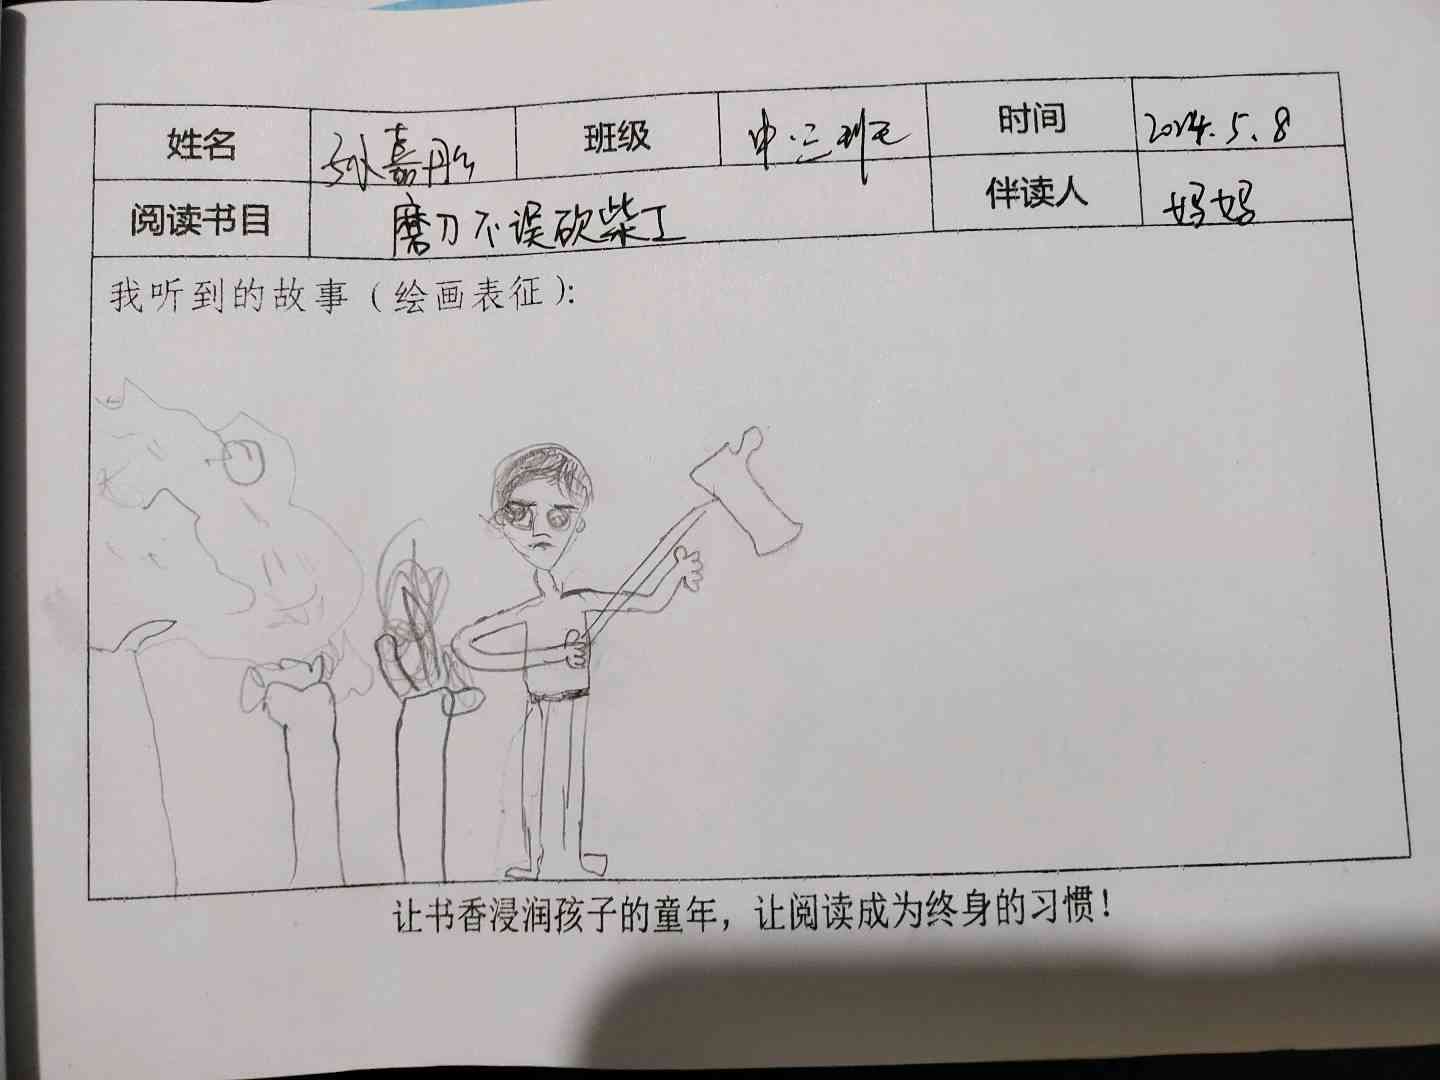 姓名 张嘉彤 班级 中三班 时间 2024.5.8
阅读书目 磨刀不误砍柴工 伴读人 妈妈
我听到的故事（绘画表征）：
让书香浸润孩子的童年，让阅读成为终身的习惯！